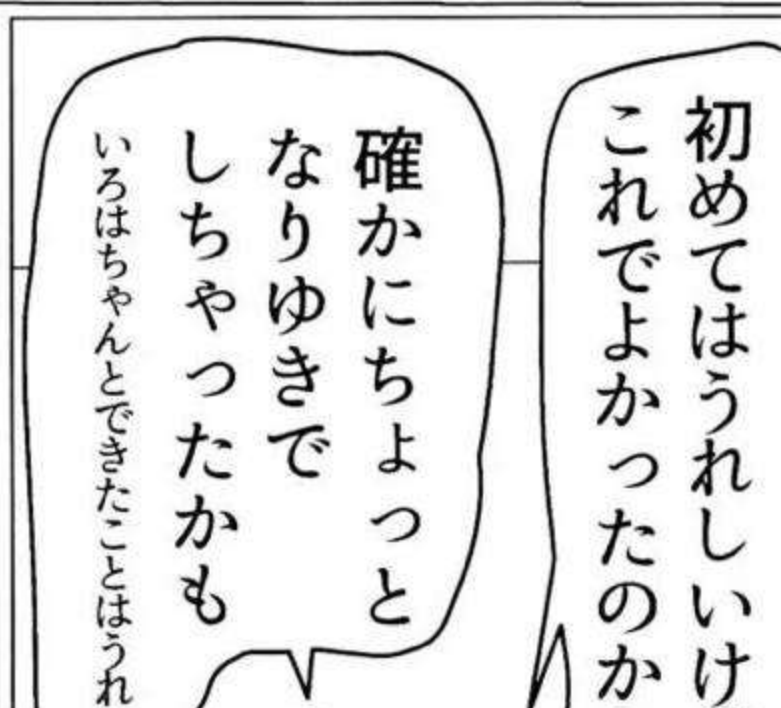 初めてはうれしいけ
これでよかったのか
確かにちょっと
なりゆきで
しちゃったかも
いろはちゃんとできたことはうれ